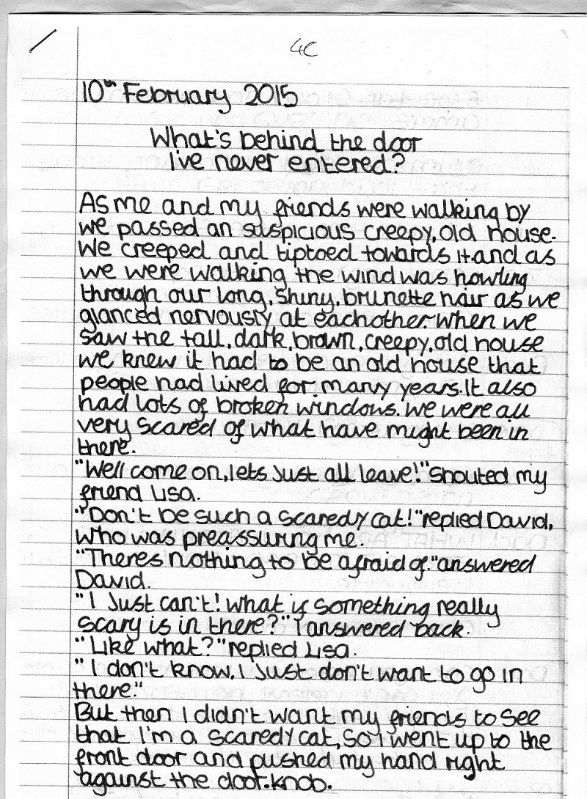 4C
10th February 2015
What's behind the door
I've never entered?
As me and my friends were walking by
we passed an suspicious creepy, old house.
We creeped and tiptoed towards it and as
we were walking the wind was howling
through our long, shiny, brunette hair as we
glanced nervously at eachother. When we
saw the tall, dark, brown, creepy, old house
we knew it had to be an old house that
people had lived for many years. It also
had lots of broken windows. We were all
very scared of what have might been in
there.
"Well come on, lets just all leave!" shouted my
friend Lisa.
"Don't be such a scaredy cat!" replied David,
who was preassuring me.
"Theres nothing to be afraid of." answered
David.
"I just can't! what if something really
scary is in there?" I answered back.
"Like what?" replied Lisa.
"I don't know, I just don't want to go in
there."
But then I didn't want my friends to see
that I'm a scaredy cat, so I went up to the
front door and pushed my hand right
against the door. knob.